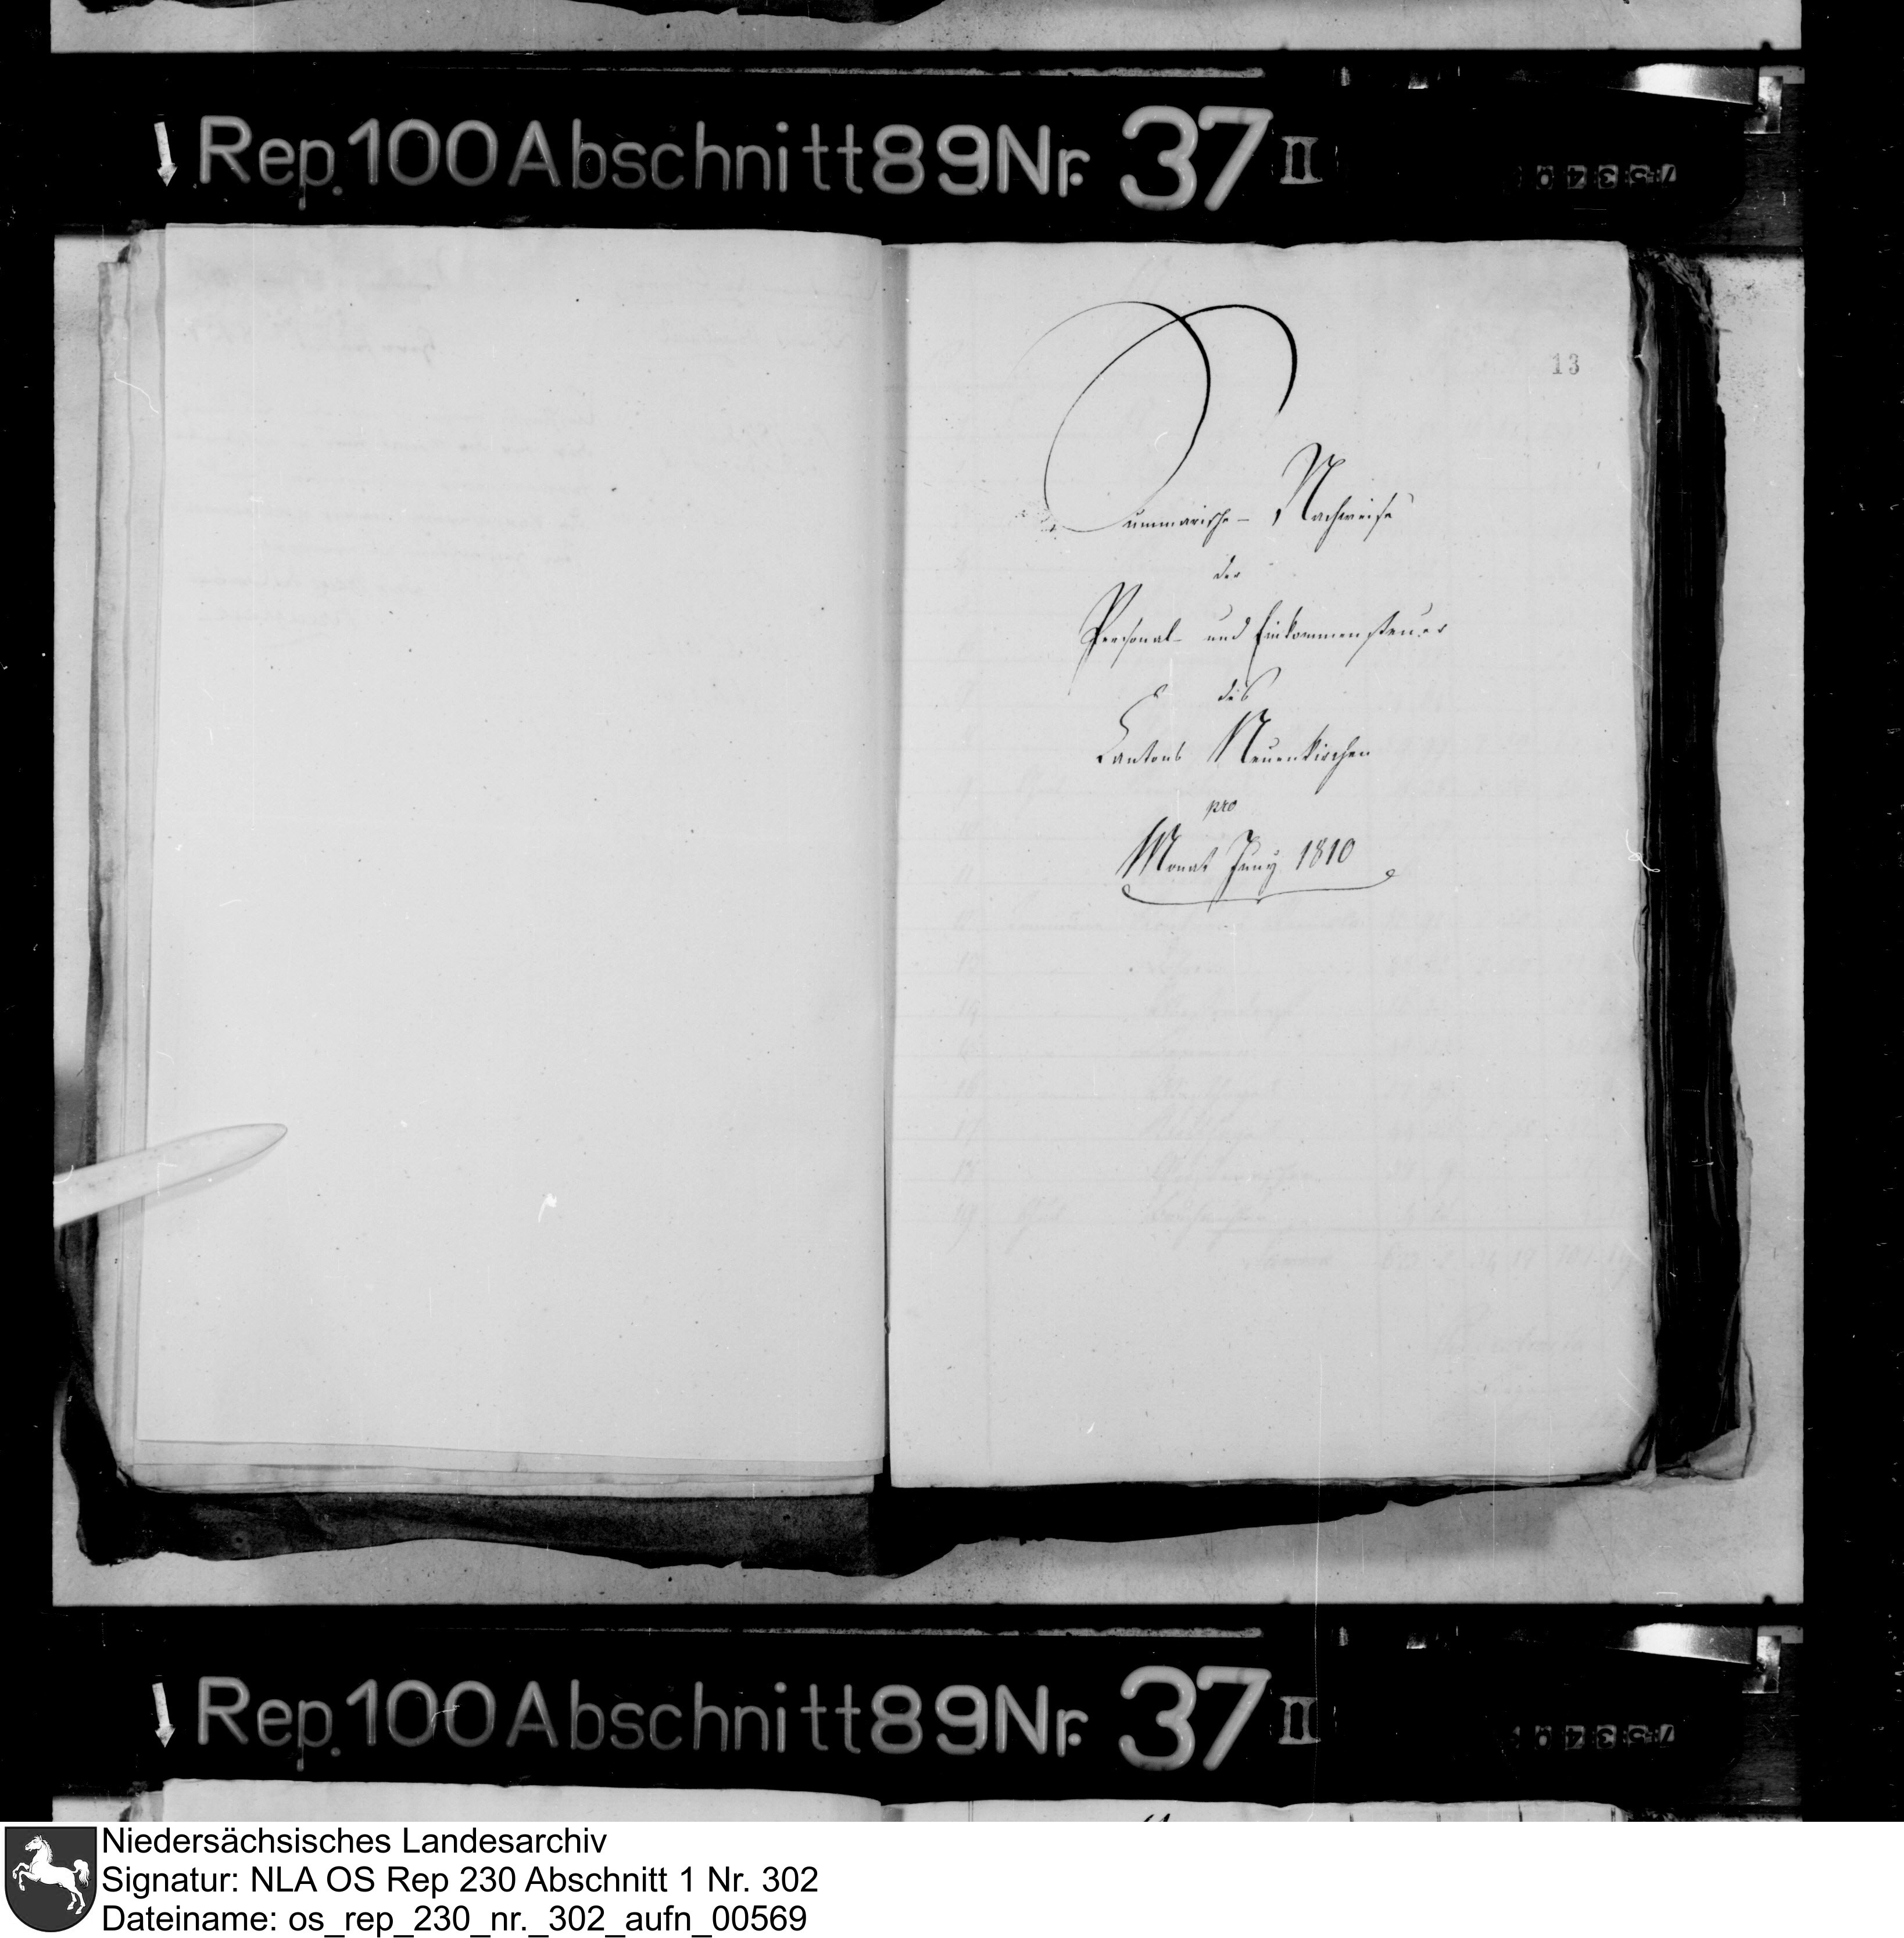 Rep. 100 Abschnitt 89 Nr. 37 II
13
Summarische Nachweise
der
Personal- und Einkommensteuer
des
Cantons Neuenkirchen
pro
Monat Juny 1810
Rep. 100 Abschnitt 89 Nr. 37 II
Niedersächsisches Landesarchiv
Signatur: NLA OS Rep 230 Abschnitt 1 Nr. 302
Dateiname: os_rep_230_nr._302_aufn_00569